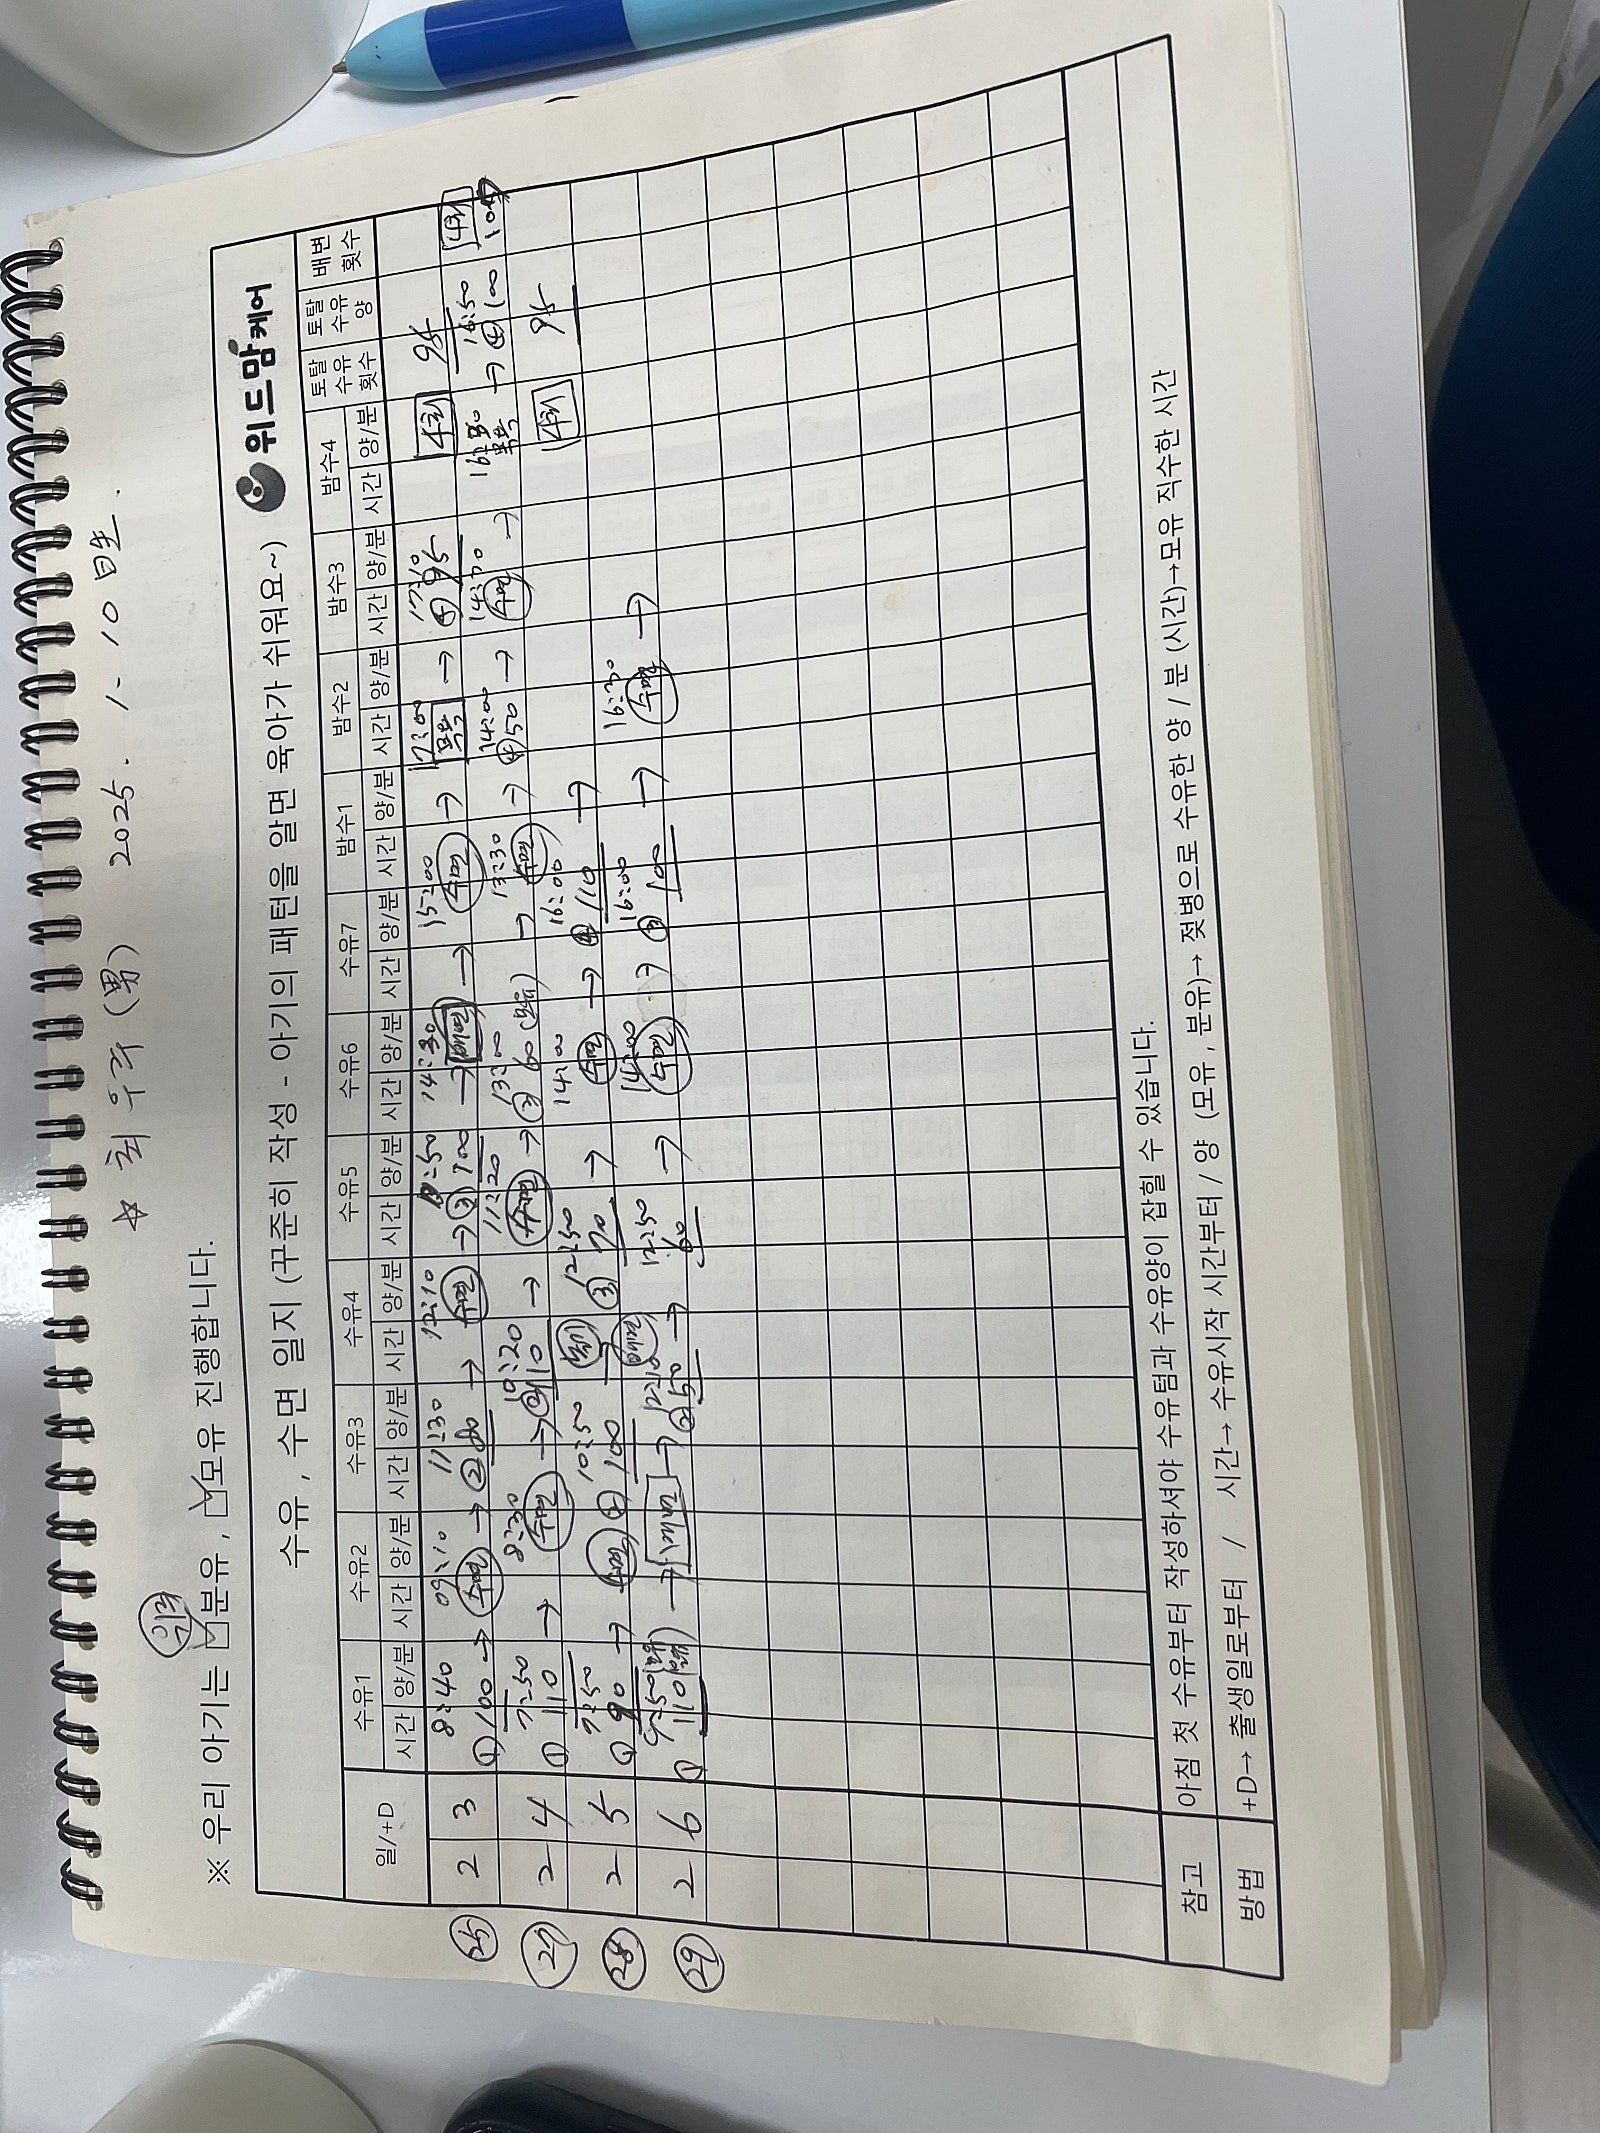 ☆ 최우주 (男) 2025. 1. 10日生.
※ 우리 아기는 ☑분유, ☑모유 진행합니다.
수유, 수면 일지 (꾸준히 작성 - 아기의 패턴을 알면 육아가 쉬워요~) 위드맘케어
일/+D 수유1 수유2 수유3 수유4 수유5 수유6 수유7 밤수1 밤수2 밤수3 밤수4 토탈 수유 횟수 토탈 수유 양 배변 횟수
시간 양/분 시간 양/분 시간 양/분 시간 양/분 시간 양/분 시간 양/분 시간 양/분 시간 양/분 시간 양/분 시간 양/분 시간 양/분
8:40 09:10 11:30 12:10 :50 14:30 15:00 17:00 17:10
25 2 3 ① 100 → 수면 → ② 80 → 수면 → ③ 100 → → 수면 → 목욕 → 95 4회 95
7:50 8:30 10:20 11:20 13:00 13:30 14:00 14:30 16:30 16:50
27 2 4 ① 110 → 수면 → ② 110 → 수면 → ③ 60 (모유) → 수면 → ④ 50 → 수면 → 목욕 → ④ 100 4회
7:50 10:50 12:50 14:00 16:00
28 2 5 ① 90 → 수면 ② 100 ③ 70 → 수면 → ④ 110 → 4회 95
9:50 12:10 12:50 14:00 16:00 16:30
29 2 6 ① 110 → → ② 50 → 60 → 수면 → ③ 100 → 수면 →
참고 아침 첫 수유부터 작성하셔야 수유텀과 수유양이 잡힐 수 있습니다.
방법 +D→ 출생일로부터 / 시간→ 수유시작 시간부터 / 양 (모유, 분유)→ 젖병으로 수유한 양 / 분 (시간)→모유 직수한 시간